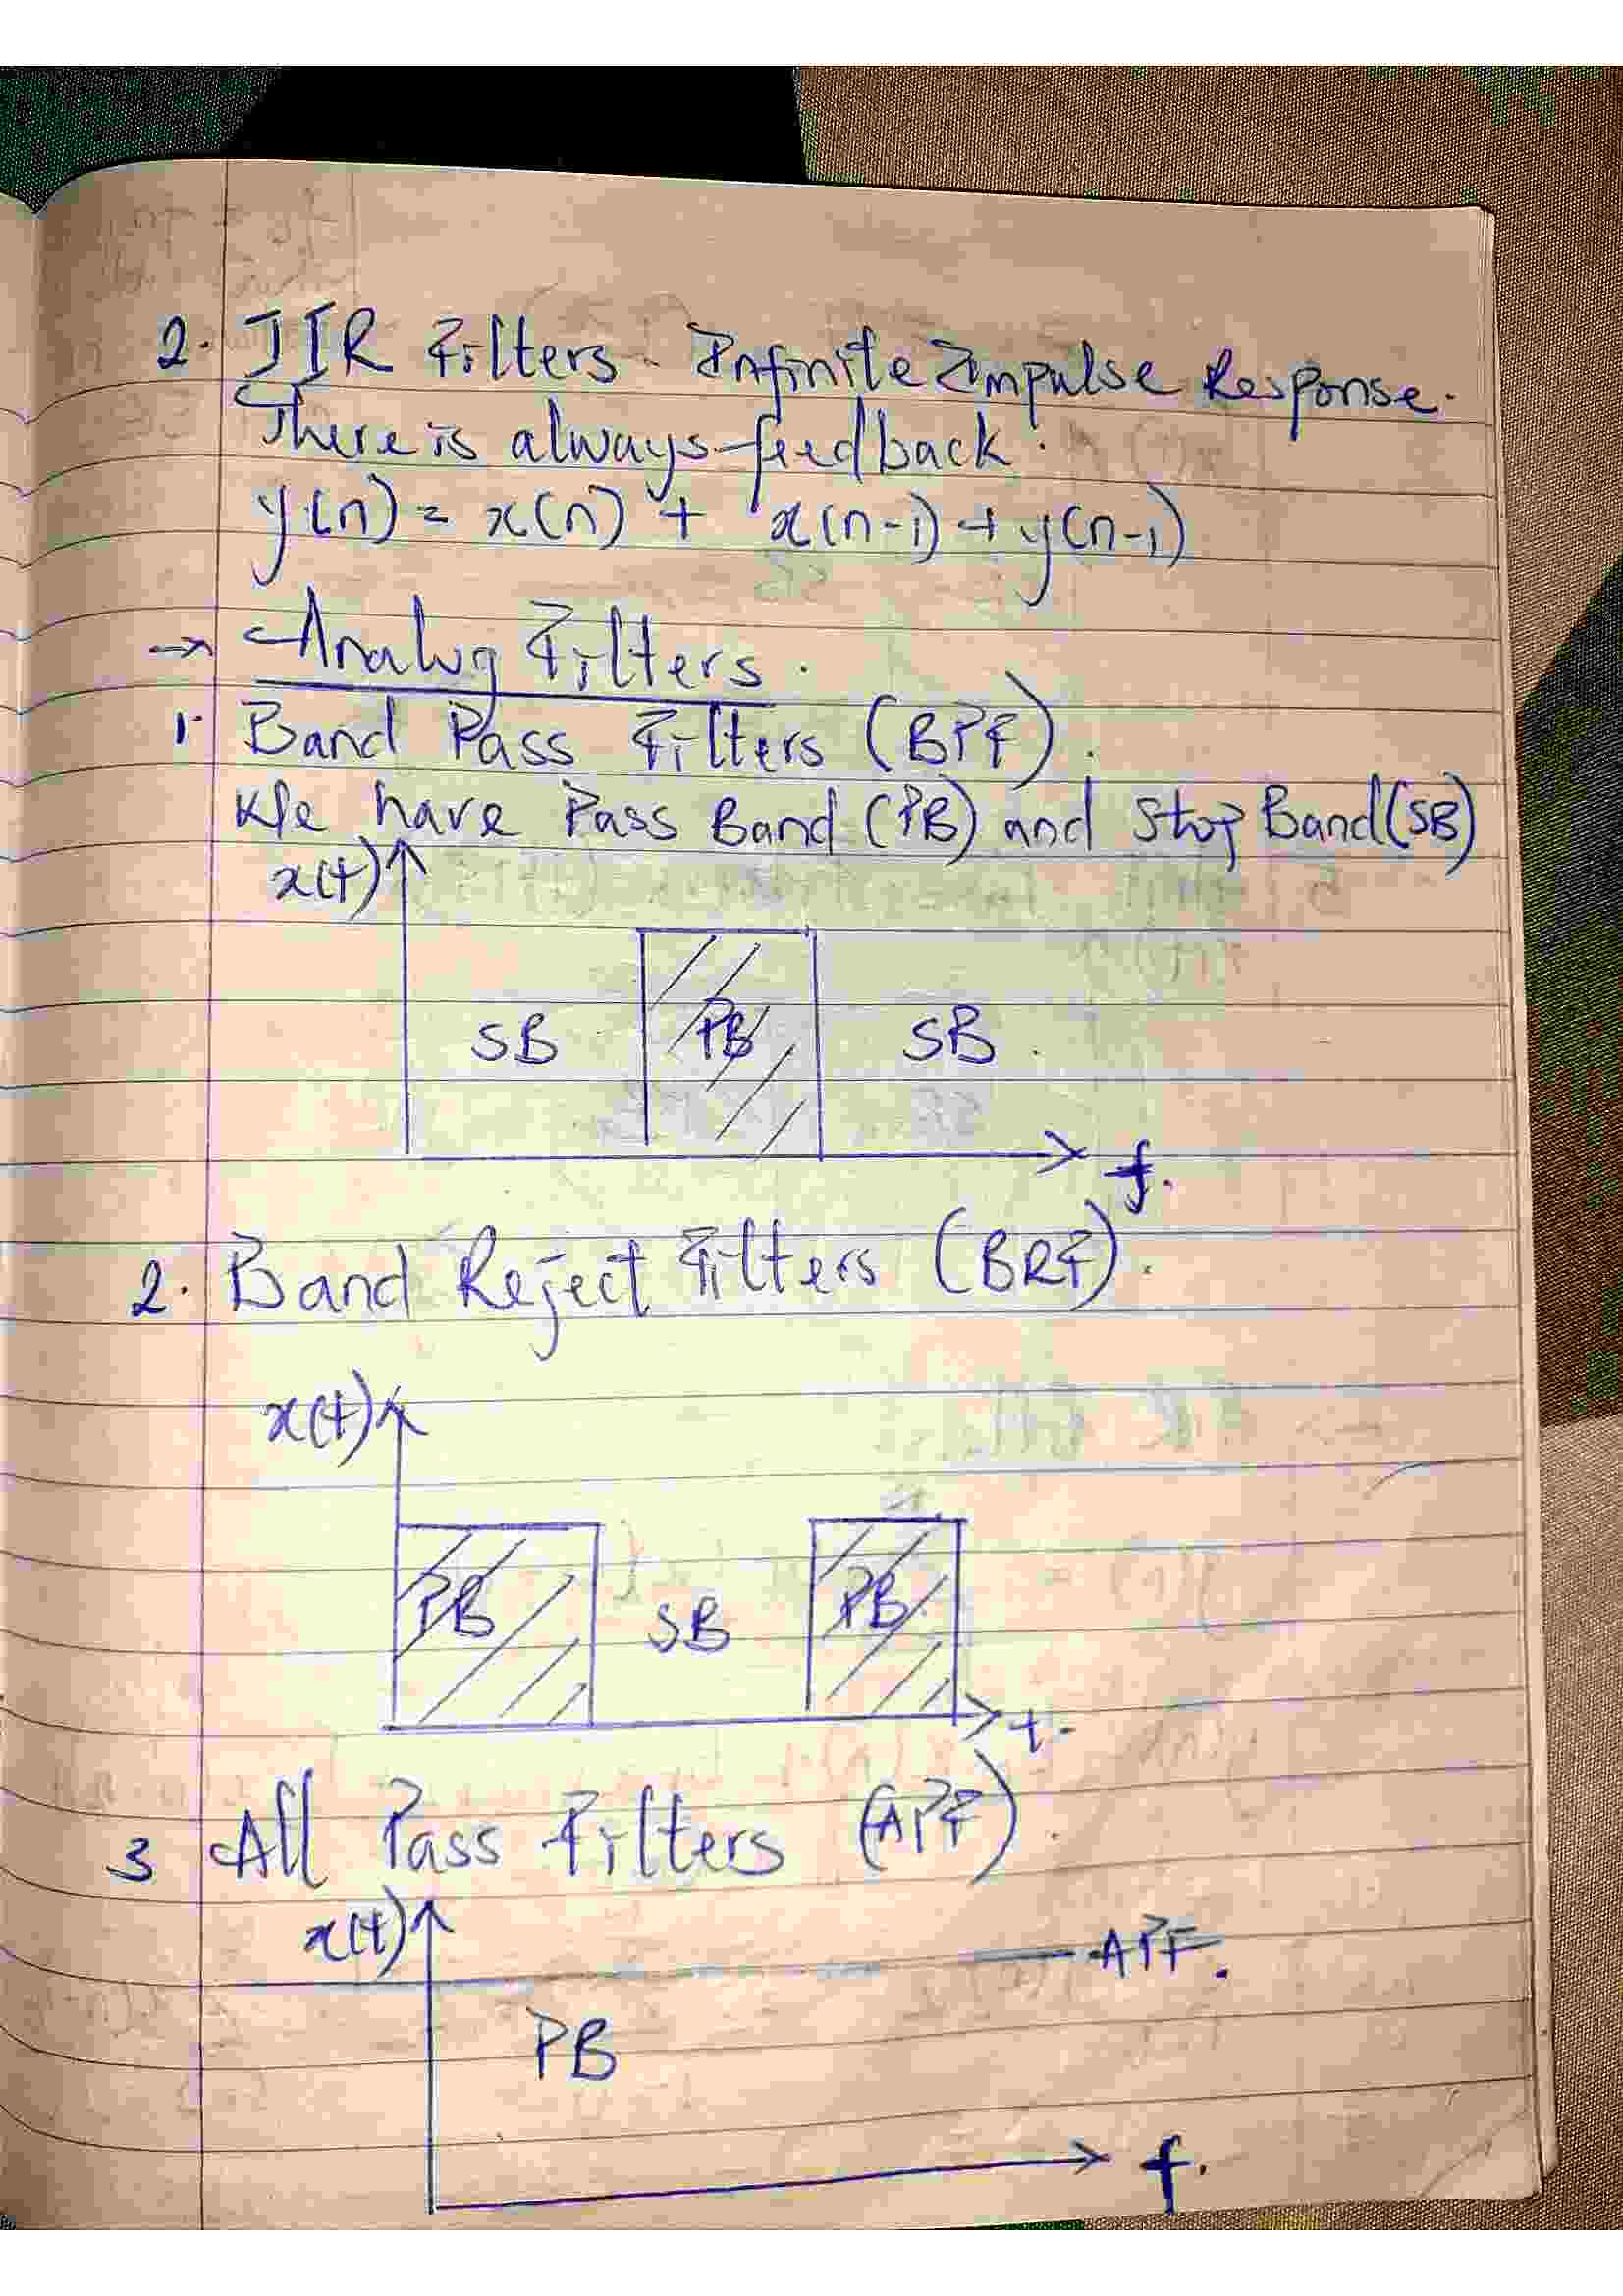 2. IIR Filters - Infinite Impulse Response.
There is always feedback.
y(n) = x(n) + x(n-1) + y(n-1)
→ Analog Filters.
1. Band Pass Filters (BPF).
We have Pass Band (PB) and Stop Band (SB)
x(t)
SB PB SB
f.
2. Band Reject Filters (BRF).
x(t)
PB SB PB
t.
3 All Pass Filters (APF).
x(t)
APF.
PB
f.